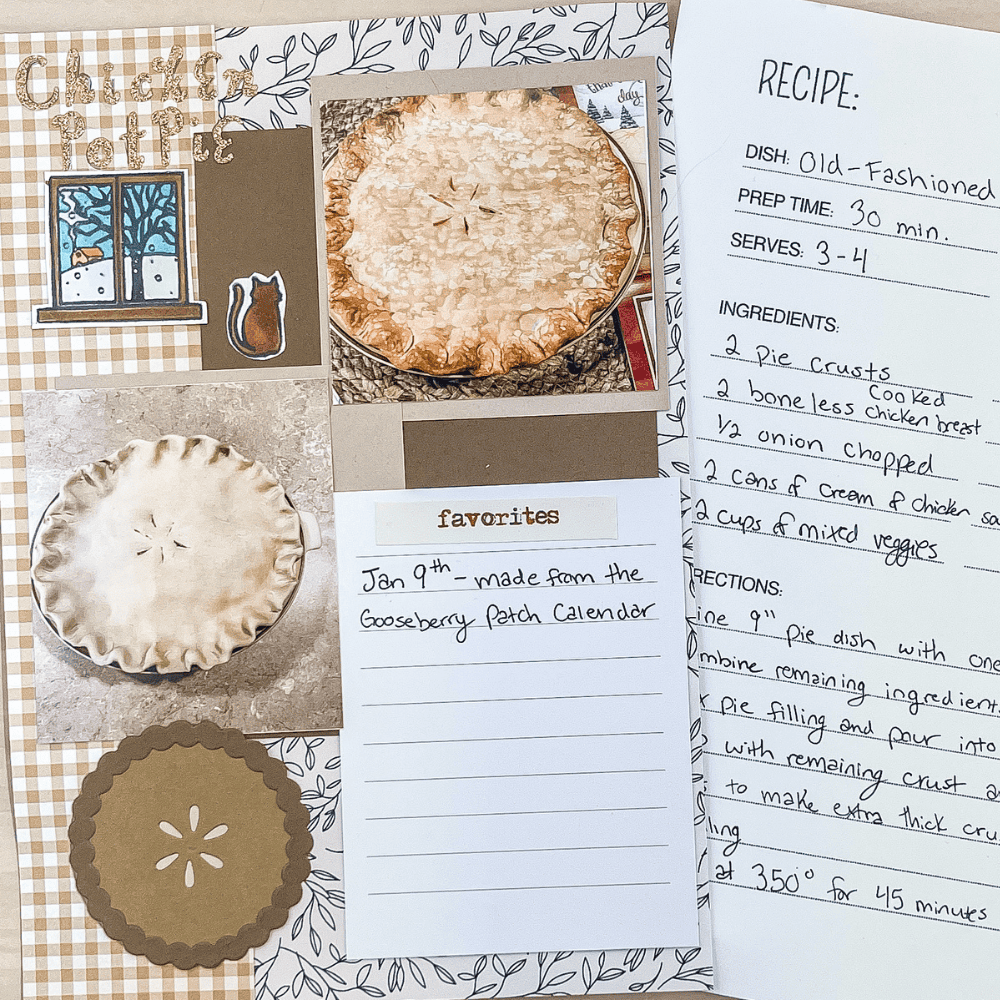 Chicken
Pot PiE
day
favorites
Jan 9th - made from the
Gooseberry Patch Calendar
RECIPE:
DISH: Old-Fashioned
PREP TIME: 30 min.
SERVES: 3-4
INGREDIENTS:
2 pie crusts
2 boneless cooked chicken breast
1/2 onion chopped
2 cans of cream of chicken so
2 cups of mixed veggies
RECTIONS:
ine 9" pie dish with one
mbine remaining ingredients
pie filling and pour into
with remaining crust a
to make extra thick cru
ling
at 350° for 45 minutes